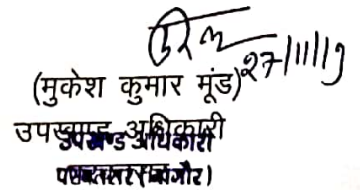 27/11/19
(मुकेश कुमार मूंड)
उपखण्ड अधिकारी
उपखण्ड अधिकारी
परबतसर (नागौर)